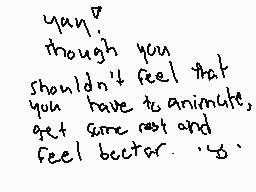 yay!
though you
shouldn't feel that
you have to animate,
get some rest and
feel bectar.